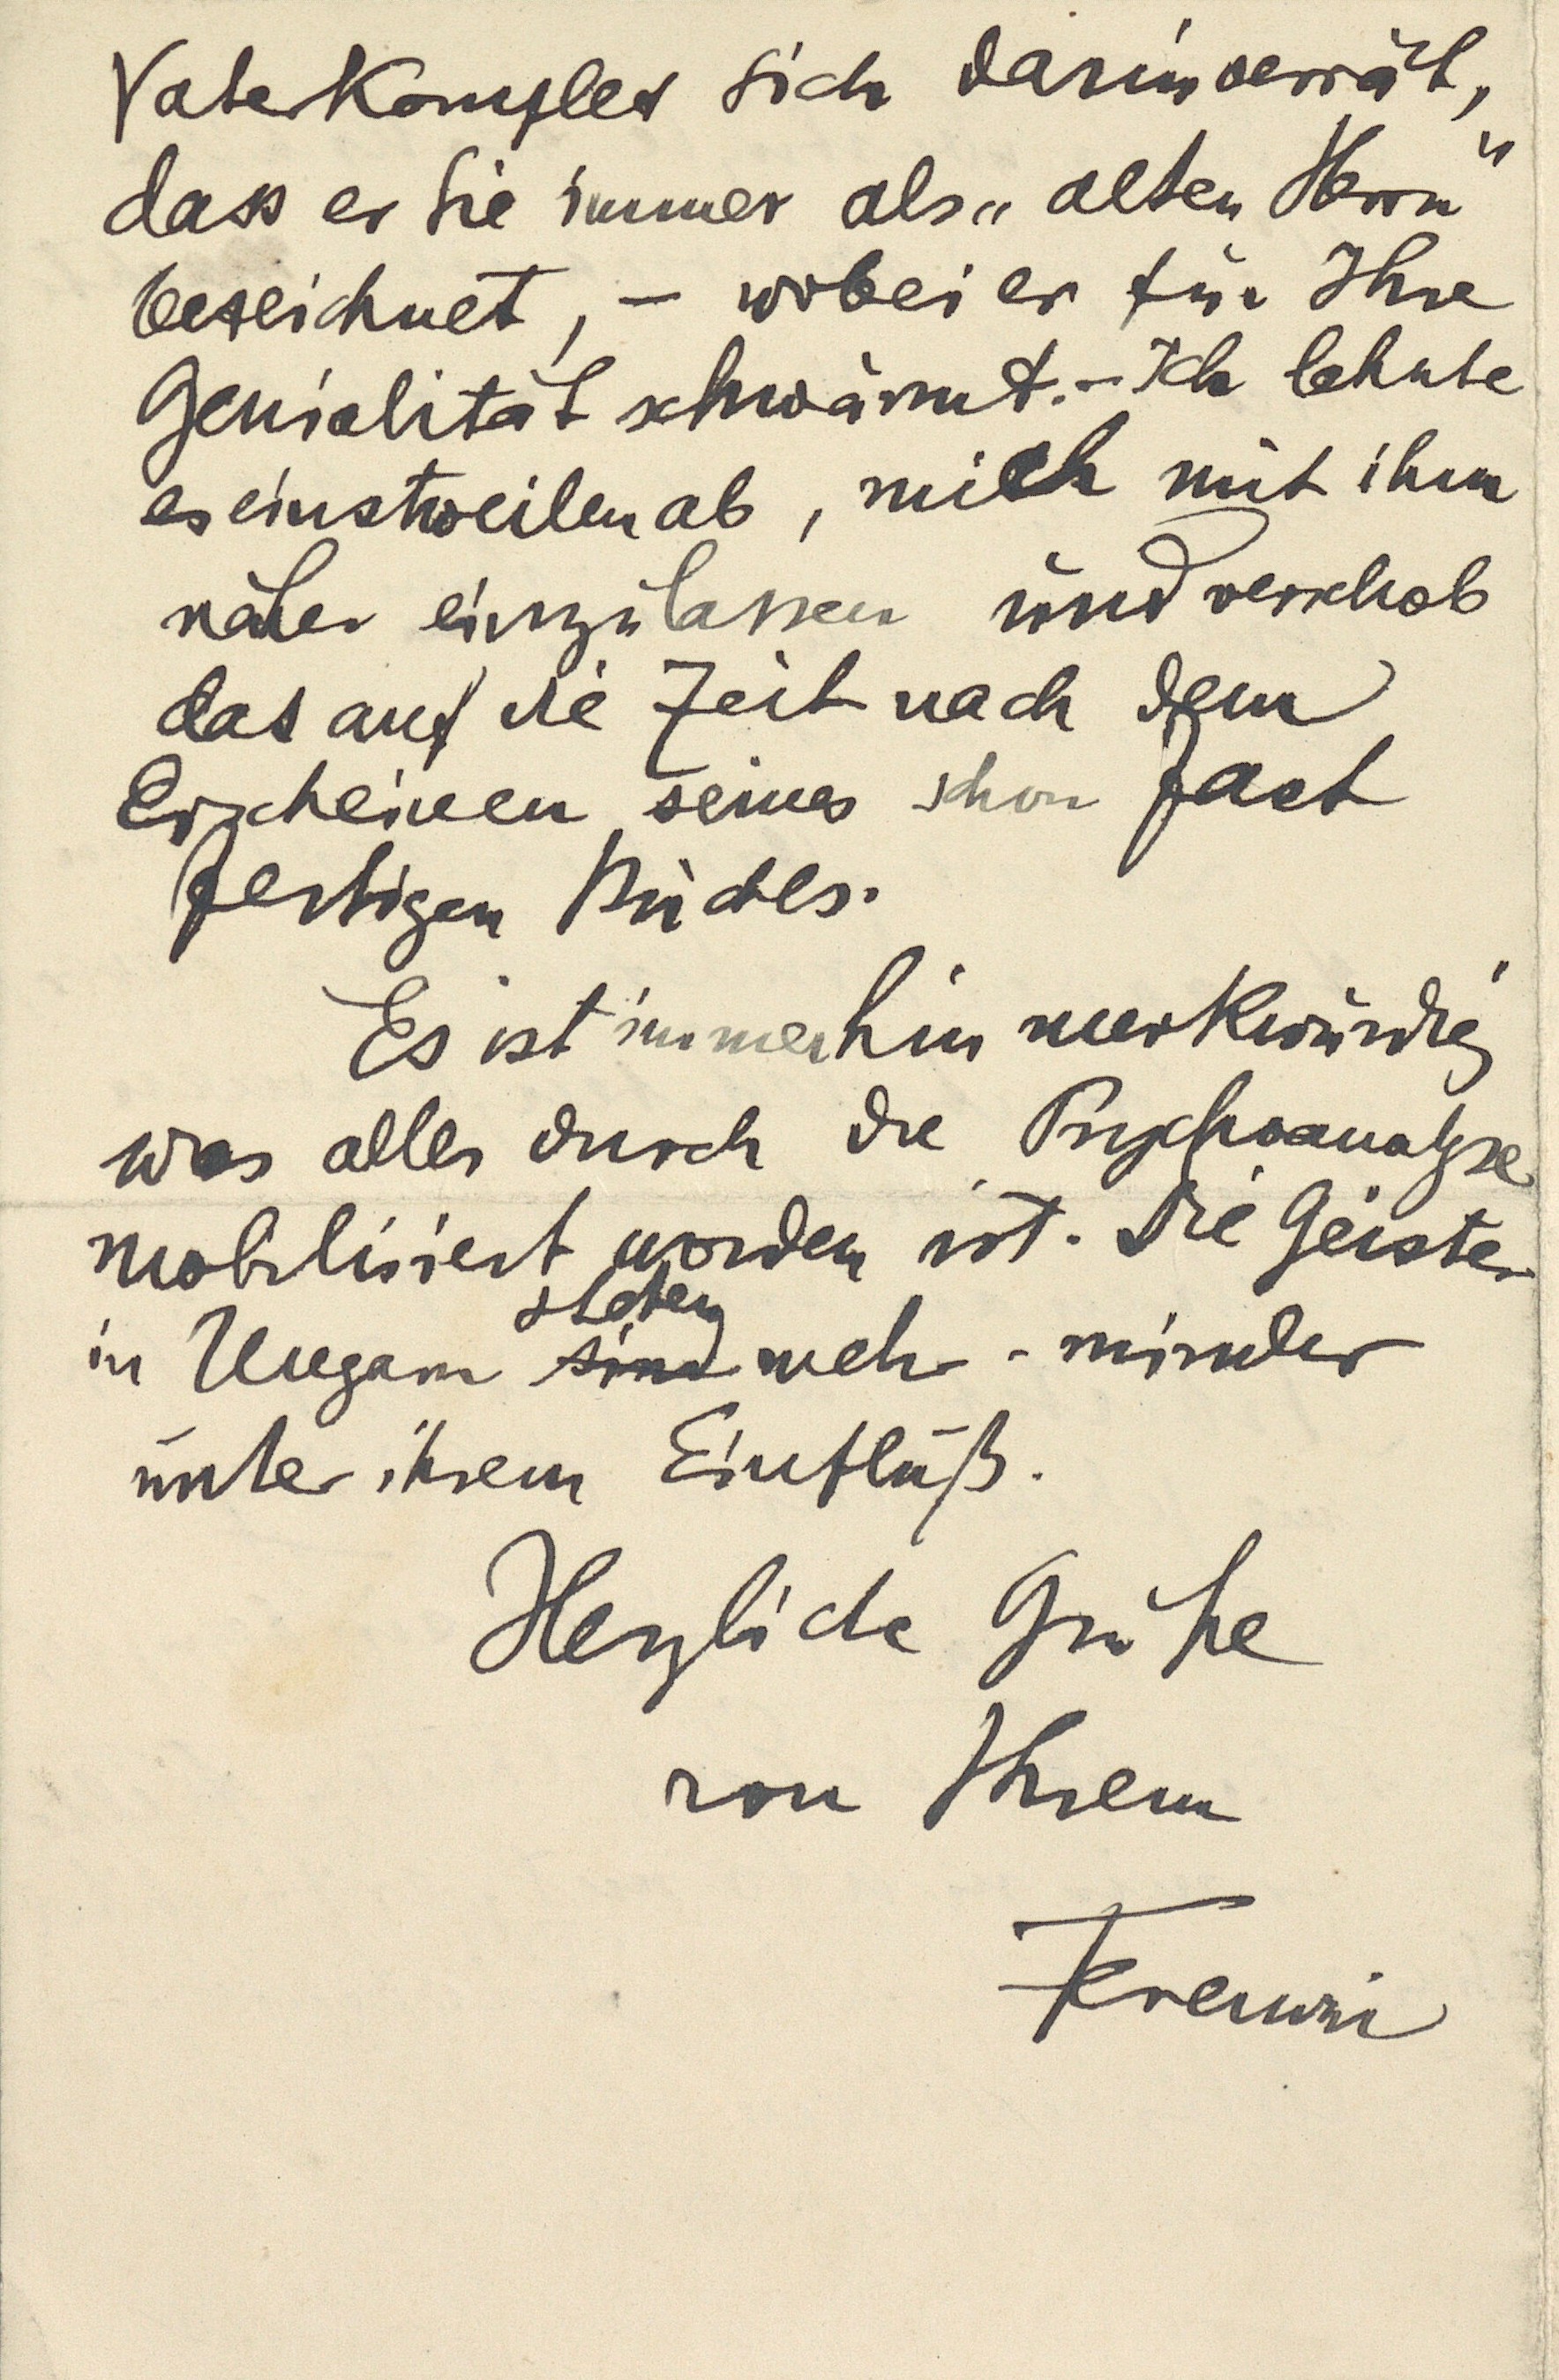 Vaterkomplex sich darin verrät,
dass er Sie immer als „alten Herrn“
bezeichnet, – wobei er für Ihre
Genialität schwärmt. – Ich lehnte
es einstweilen ab, mich mit ihm
näher einzulassen und verschob
das auf die Zeit nach dem
Erscheinen seines schon fast
fertigen Buches.
Es ist immerhin merkwürdig
was alles durch die Psychoanalyse
mobilisiert worden ist. Die Geister
stehen
in Ungarn sind mehr-minder
unter ihrem Einfluß.
Herzliche Grüße
von Ihrem
Ferenczi